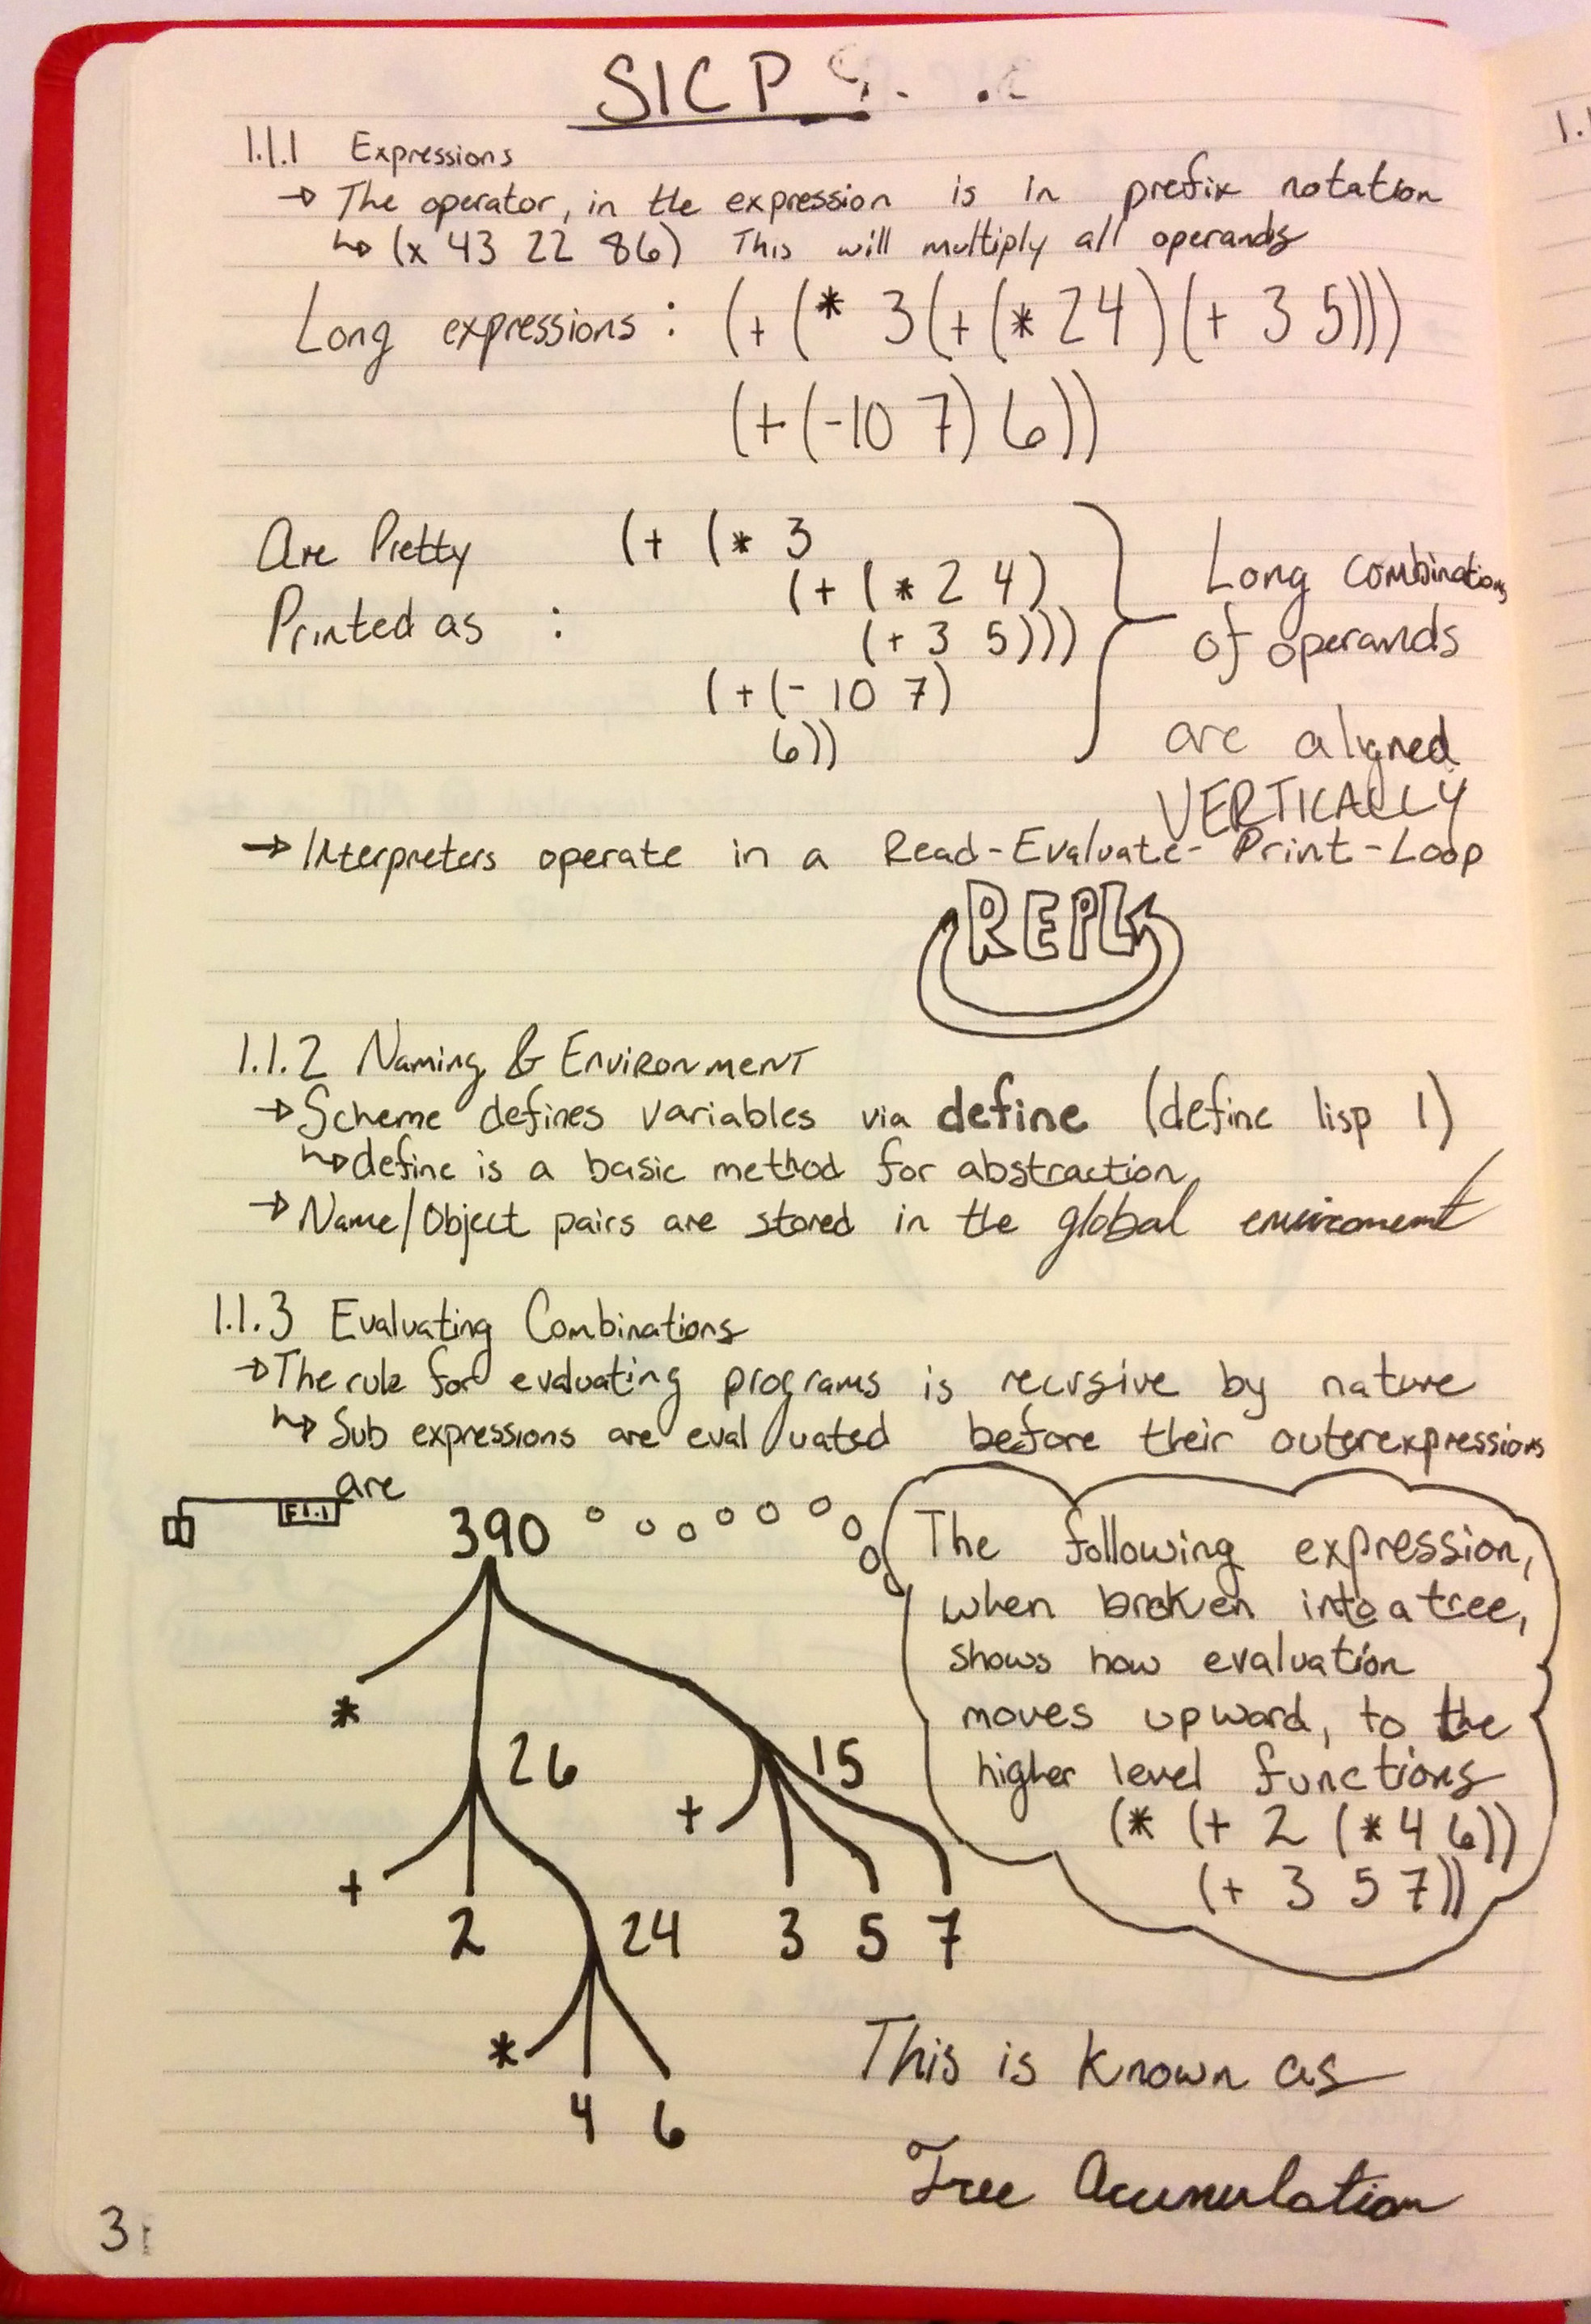 SICP
1.1.1 Expressions
→ The operator, in the expression is in prefix notation
↳ (x 43 22 86) This will multiply all operands
Long expressions : (+ (* 3 (+ (* 2 4) (+ 3 5)))
(+ (- 10 7) 6))
Are Pretty
Printed as :
(+ (* 3
(+ (* 2 4)
(+ 3 5)))
(+ (- 10 7)
6))
Long combinations
of operands
are aligned
VERTICALLY
→ Interpreters operate in a Read-Evaluate-Print-Loop
REPL
1.1.2 Naming & Environment
→ Scheme defines variables via define (define lisp 1)
↳ define is a basic method for abstraction
→ Name/Object pairs are stored in the global enviroment
1.1.3 Evaluating Combinations
→ The rule for evaluating programs is recursive by nature
↳ Sub expressions are evaluated before their outerexpressions
are
F1.1
390
The following expression,
when broken into a tree,
shows how evaluation
moves upward, to the
higher level functions
(* (+ 2 (* 4 6))
(+ 3 5 7))
*
26
15
+
+
2
24
3 5 7
*
4 6
This is known as
Tree Accumulation
3